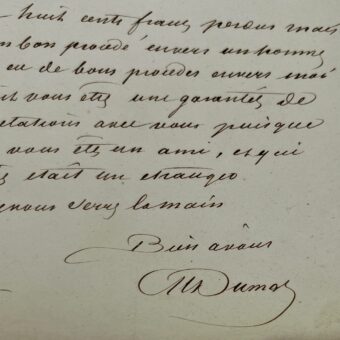 huit cents francs perdus mais
bon procédé envers un homme
eu de bons procédés envers moi
vous êtes une garantie de
relations avec vous puisque
vous êtes un ami, et qui
était un étranger.
vous serre la main
Bien à vous